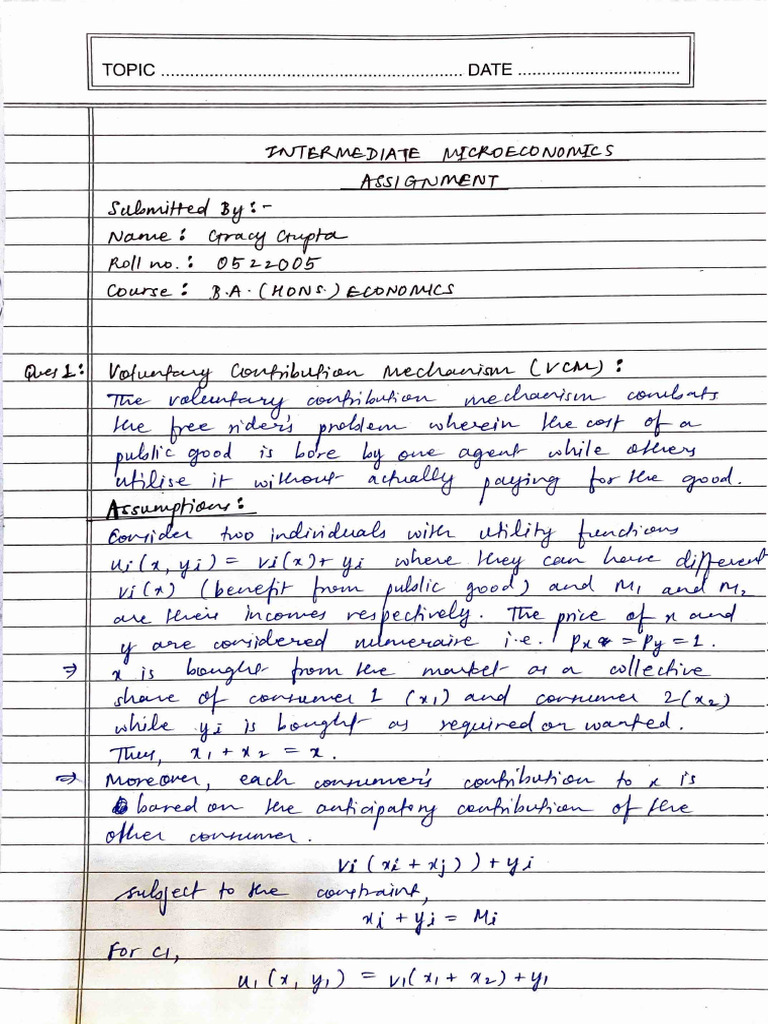 TOPIC ............................................................... DATE ..................................
INTERMEDIATE MICROECONOMICS
ASSIGNMENT
Submitted By:-
Name: Gracy Gupta
Roll no.: 0522005
Course: B.A. (HONS.) ECONOMICS
Ques 1: Voluntary Contribution Mechanism (VCM):
The voluntary contribution mechanism combats
the free rider's problem wherein the cost of a
public good is bore by one agent while others
utilise it without actually paying for the good.
Assumptions:
Consider two individuals with utility functions
ui(x, yi) = vi(x) + yi where they can have different
vi(x) (benefit from public good) and M1 and M2
are their incomes respectively. The price of x and
y are considered numeraire i.e. Px = Py = 1.
⇒ x is bought from the market as a collective
share of consumer 1 (x1) and consumer 2(x2)
while yi is bought as required or wanted.
Thus, x1 + x2 = x.
⇒ Moreover, each consumer's contribution to x is
based on the anticipatory contribution of the
other consumer.
vi(xi + xj)) + yi
subject to the constraint,
xi + yi = Mi
For C1,
u1(x, y1) = v1(x1 + x2) + y1